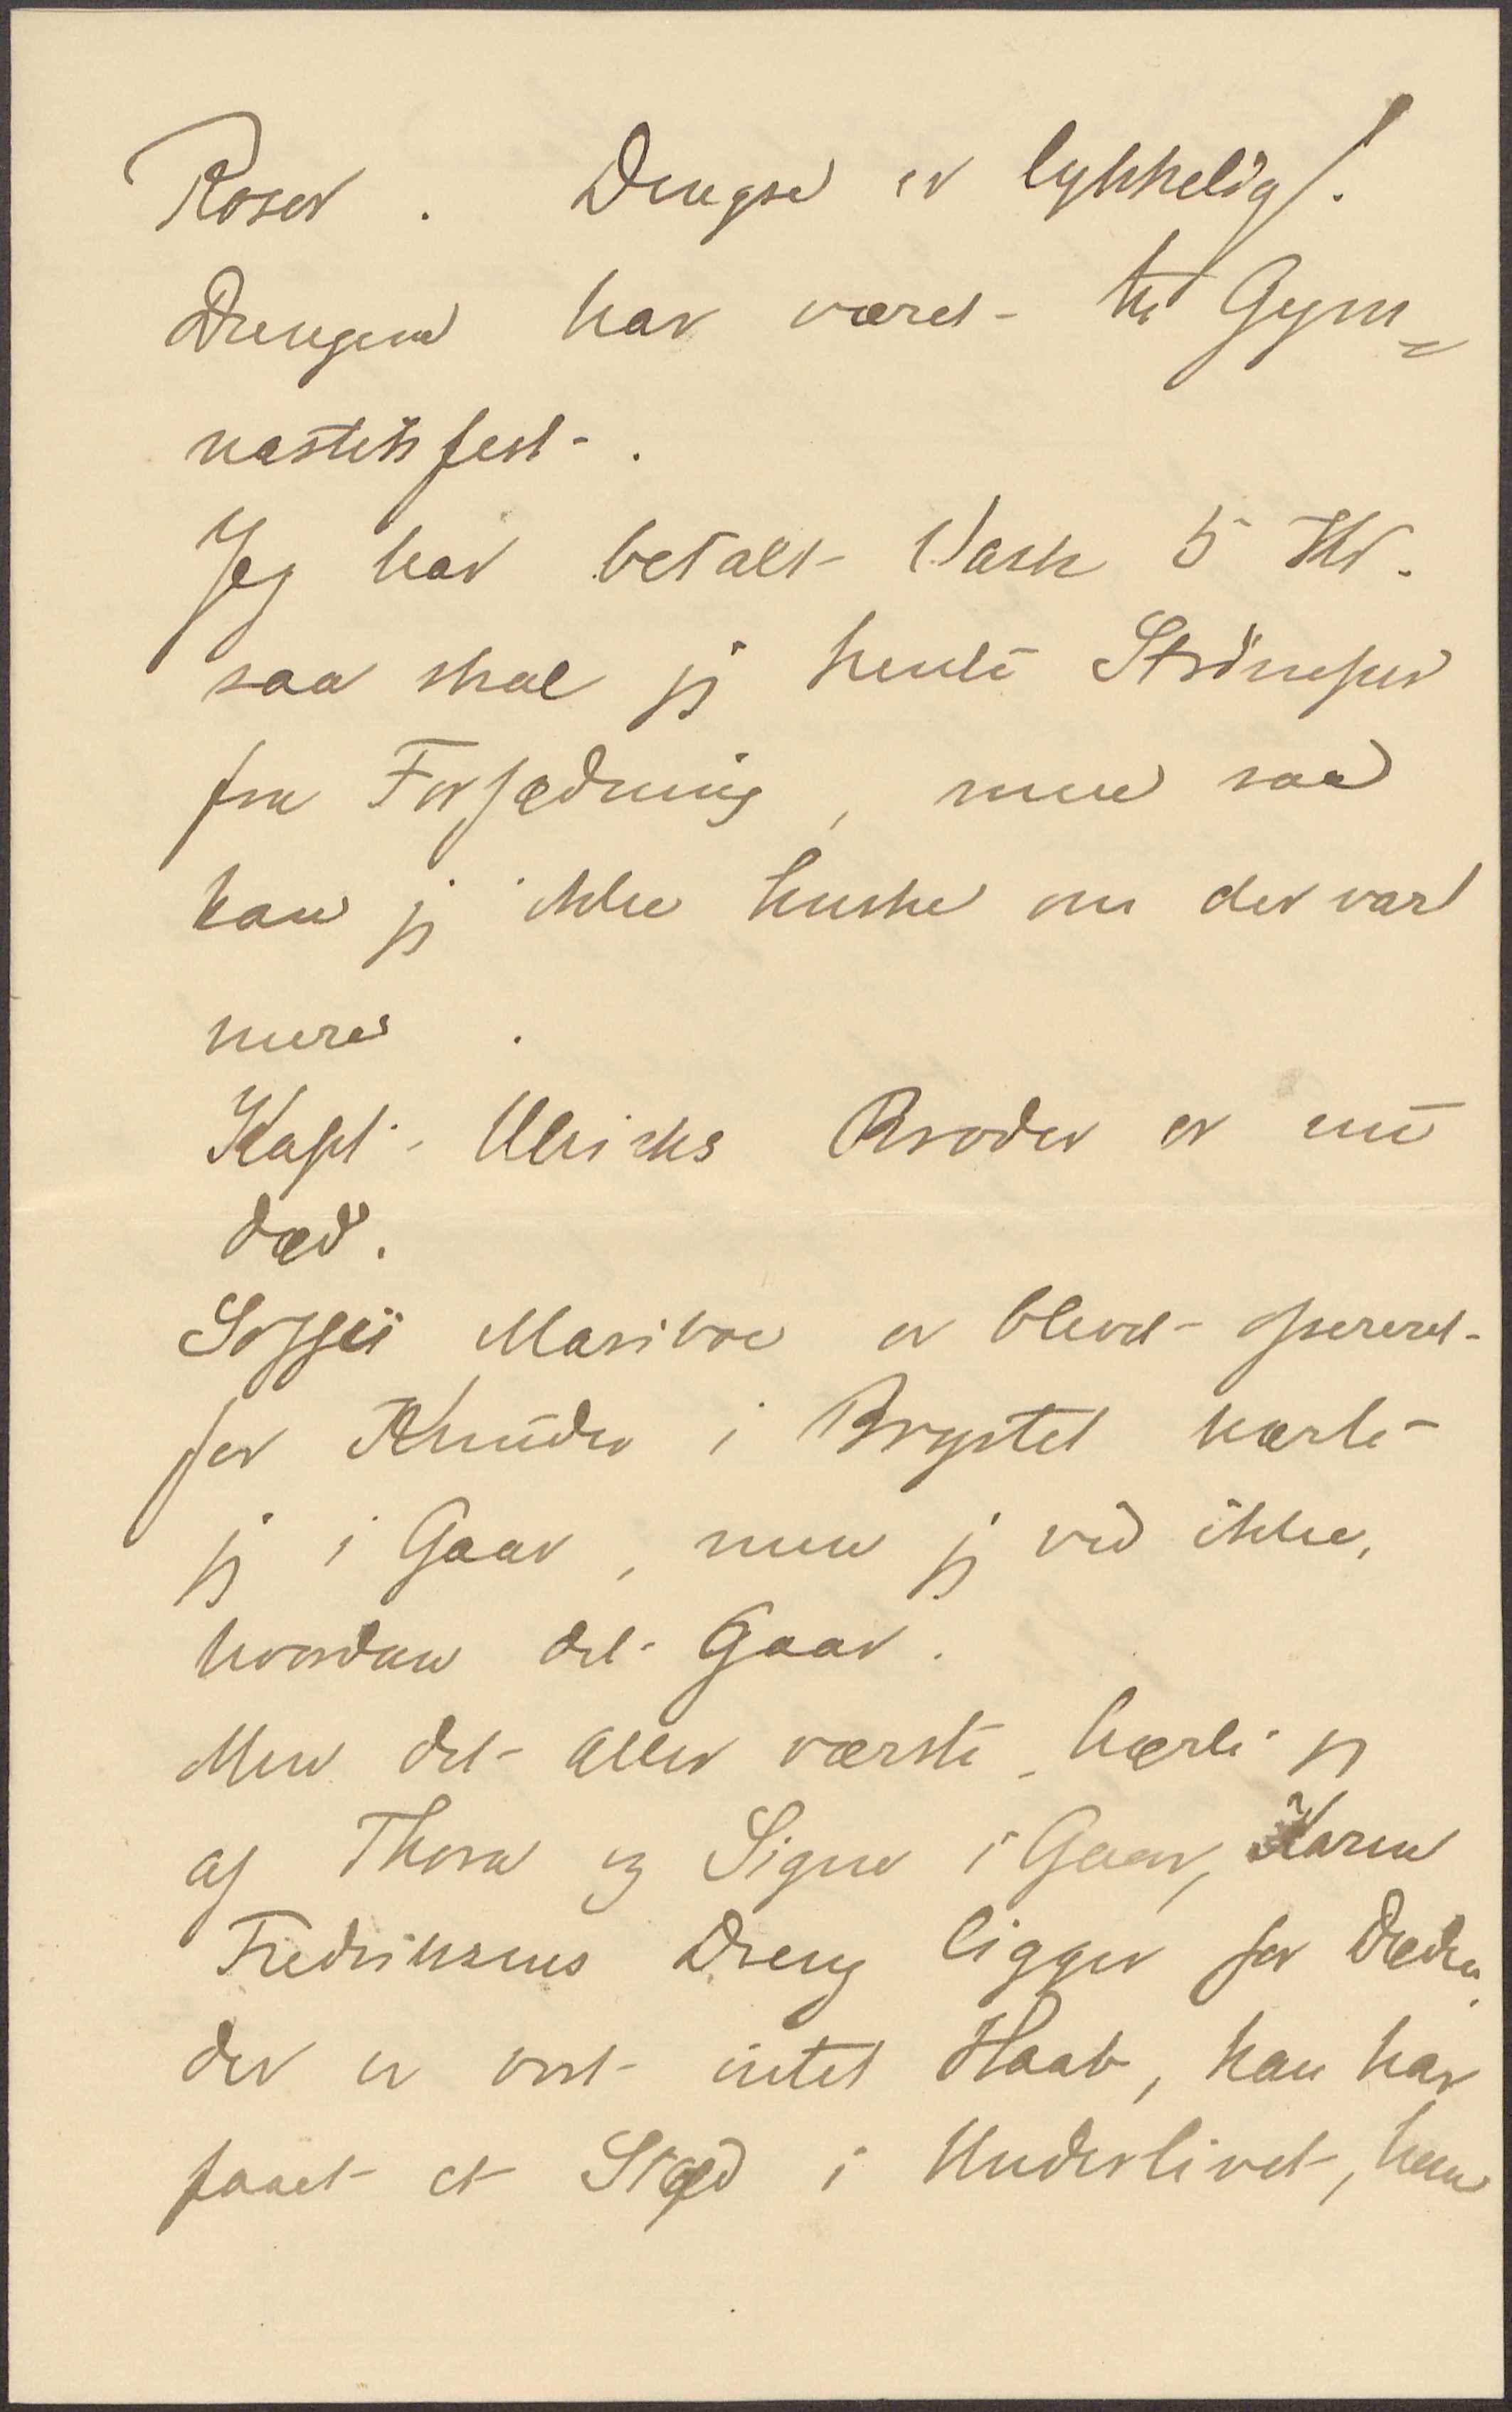 Roser. Dengse er lykkelig!
Drengene har været til Gym=
nastikfest.
Jeg har betalt Vask 5 Kr.
saa skal jeg hente Strömper
fra Forfødning, men saa
kan jeg ikke huske om der var
mere.
Kapt. Ulrichs Broder er nu
død.
Soffii Mariboe er blevet opereret
for Knuder i Brystet hørte
jeg i Gaar, men jeg ved ikke,
hvordan det Gaar.
Men det aller værste hørte jeg
af Thora og Signe i Gaar, Karen
Fredriksens Dreng ligger for Døden,
der er vist intet Haab, han har
faaet et Stød i Underlivet, hun